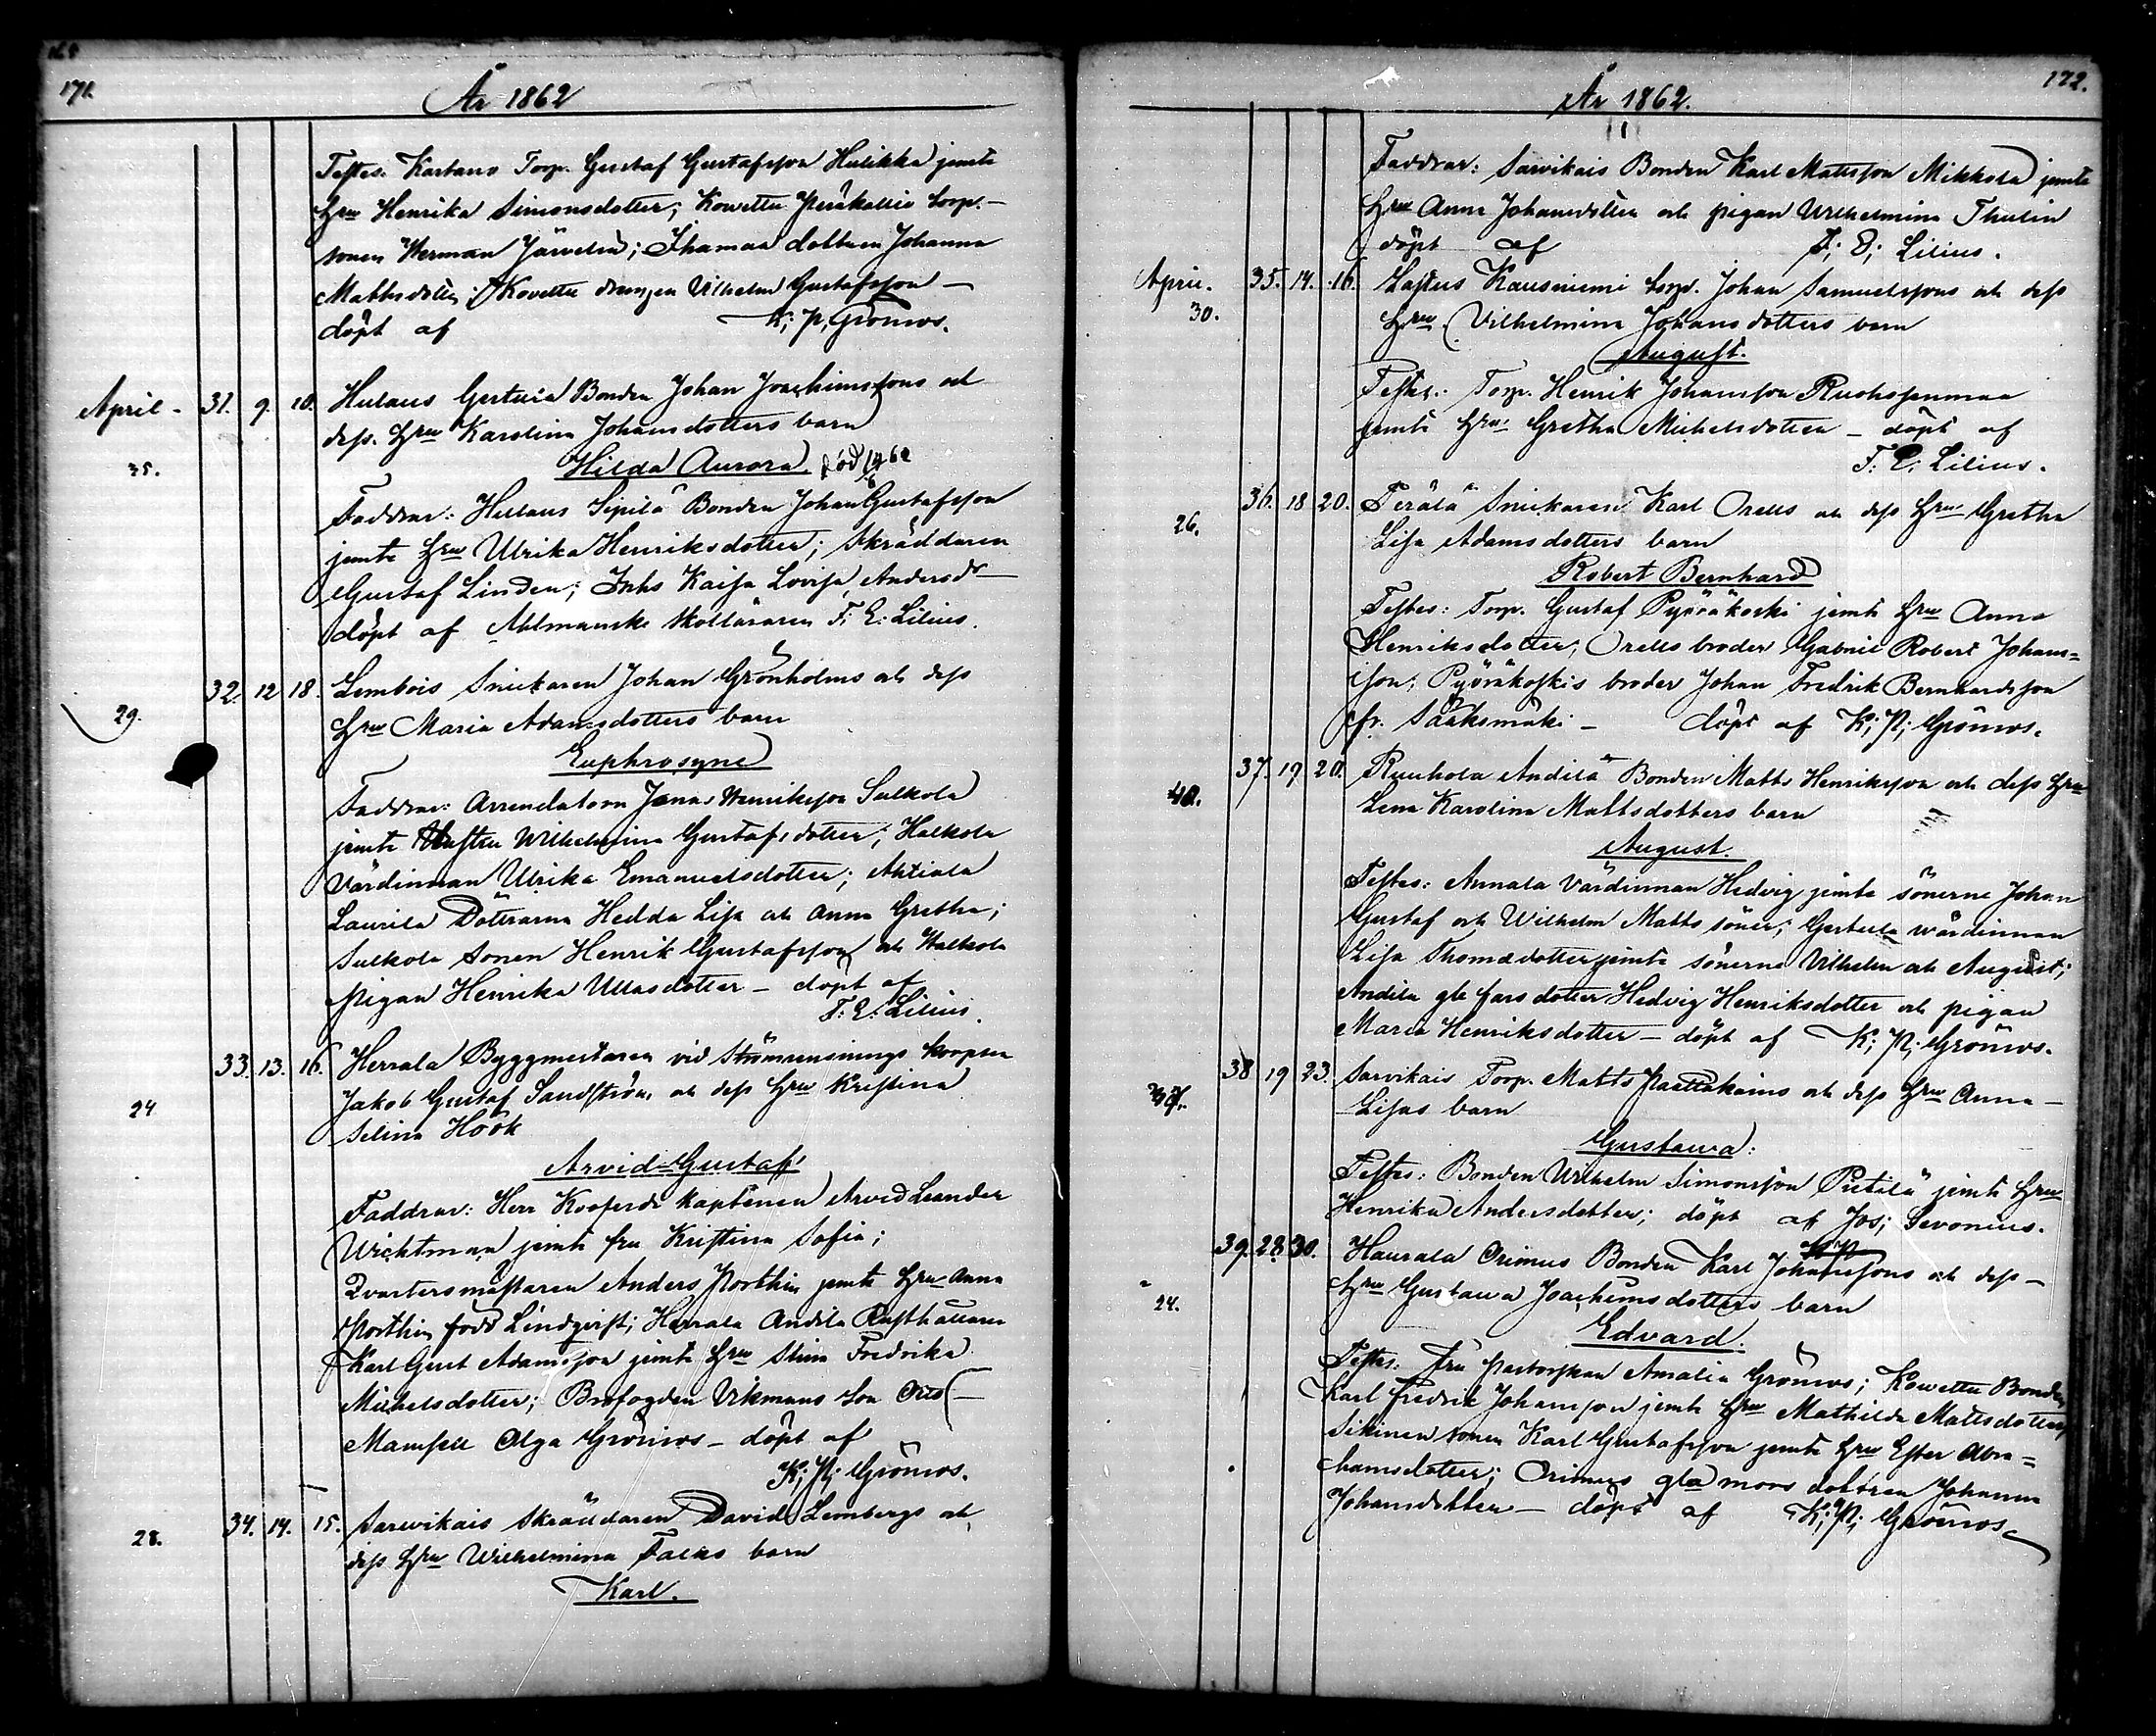 171.
År 1862
Testes: Kartano Torp. Gustaf Gustafsson Hulikka jemte
Hru Henrika Simonsdotter; Kowettu Peräkallio torp.
sonen Herman Järvelin; Ihamaa dottern Johanna
Mattsdotter; Kovettu drengen Vilhelm Gustafsson —
döpt af K; P; Grönros.
April - 31. 9. 10. Hulaus Gertuia Bonden Johan Joachimssons och
dess Hru Karolina Johansdotters barn
35. Hilda Aurora
Faddrar: Hulaus Sipilä Bonden Johan Gustafsson
jemte Hru Ulrika Henriksdotter; Skräddaren
Gustaf Linden; Inhs Kaisa Lovisa Andersdr —
döpt af Ahlmanske skolläraren F; E: Lilius.
32. 12 18. Lembois Snickaren Johan Grönholms och dess
29. Hru Maria Adamsdotters barn
Euphrosyne
Faddrar: Arrendatorn Jonas Henriksson Sulkola
jemte Wilhelmina Gustafsdotter; Halkola
Värdinnan Ulrika Emanuelsdotter; Ahtiala
Laurila Döttrarna Hedda Lisa och Anna Gretha;
Sulkola Sonen Henrik Gustafsson och Halkola
pigan Henrika Ullasdotter — döpt af
F: E: Lilius.
33. 13. 16. Herrala Byggmestaren vid Strömrensnings korpsen
24 Jakob Gustaf Sandström och dess Hru Kristina
Selina Höök
Arvid Gustaf
Faddrar: Herr Kooferdi kaptenen Arvid Leander
Wichtman jemte fru Kristina Sofia;
Qvartersmästaren Anders Northin jemte Hru Anna
Northin född Lindqvist; Herrala Andila Rusthållaren
Karl Gust Adamsson jemte Hru Stina Fredrika
Michelsdotter; Brofogden Vikmans Son Otto —
Mamsell Olga Grönros — döpt af
K; P; Grönros.
28. 34. 14. 15. Sarvikais Skräddaren David Lembergs och
dess Hru Wilhelmina Falks barn
Karl.
172.
År 1862.
Faddrar: Sarvikais Bonden Karl Mattsson Mikkola jemte
Hru Anna Johansdotter och pigan Wilhelmina Thulin
döpt af F; E; Lilius.
April. 35. 14. 16. Lastus Kausniemi torp. Johan Samuelssons och dess
30. Hru Vilhelmina Johansdotters barn
August.
Testes: Torp. Henrik Johansson Ruohosenmaa
jemte Hru Gretha Michelsdotter — döpt af
F: E: Lilius.
26. 36. 18 20. Perälä Snickaren Karl Orells och dess Hru Gretha
Lisa Adamsdotters barn
Robert Bernhard
Testes: Torp. Gustaf Pyöräkoski jemte Hru Anna
Henriksdotter; Orells broder Gabriel Robert Johans=
son; Pyöräkoskis broder Johan Fredrik Bernhardsson
fr. Sääksmäki — döpt af K; P; Grönros.
37. 19 20. Ruuhola Andilä Bonden Matts Henriksson och dess Hru
Lena Karolina Mattsdotters barn
August.
Testes: Annala värdinnan Hedvig jemte sönerne Johan
Gustaf och Wilhelm Matts söner; Gertula wärdinnan
Lisa Thomasdotter jemte sönerna Vilhelm och August;
Andila gla fars dotter Hedvig Henriksdotter och pigan
Maria Henriksdotter — döpt af K; P; Grönros.
38 19 23. Sarvikais Torp. Matts och dess Hru Anna —
Lisas barn
Gustawa.
Testes: Bonden Wilhelm Simonsson Pietilä jemte Hru
Henrika Andersdotter; döpt af Jos; Sevonius.
39. 28. 30. Haurala Orimus Bonden Karl Johanssons och dess —
24. Hru Gustawa Joachimsdotters barn
Edvard.
Testes: Fru Pastorskan Amalia Grönros; Kowettu Bonden
Karl Fredrik Johansson jemte Hru Mathilda Mattsdotter;
Sikinen sonen Karl Gustafsson jemte Hru Ester Abra=
hamsdotter; Orimus gla mors dottren Johanna
Johansdotter — döpt af K; P; Grönros